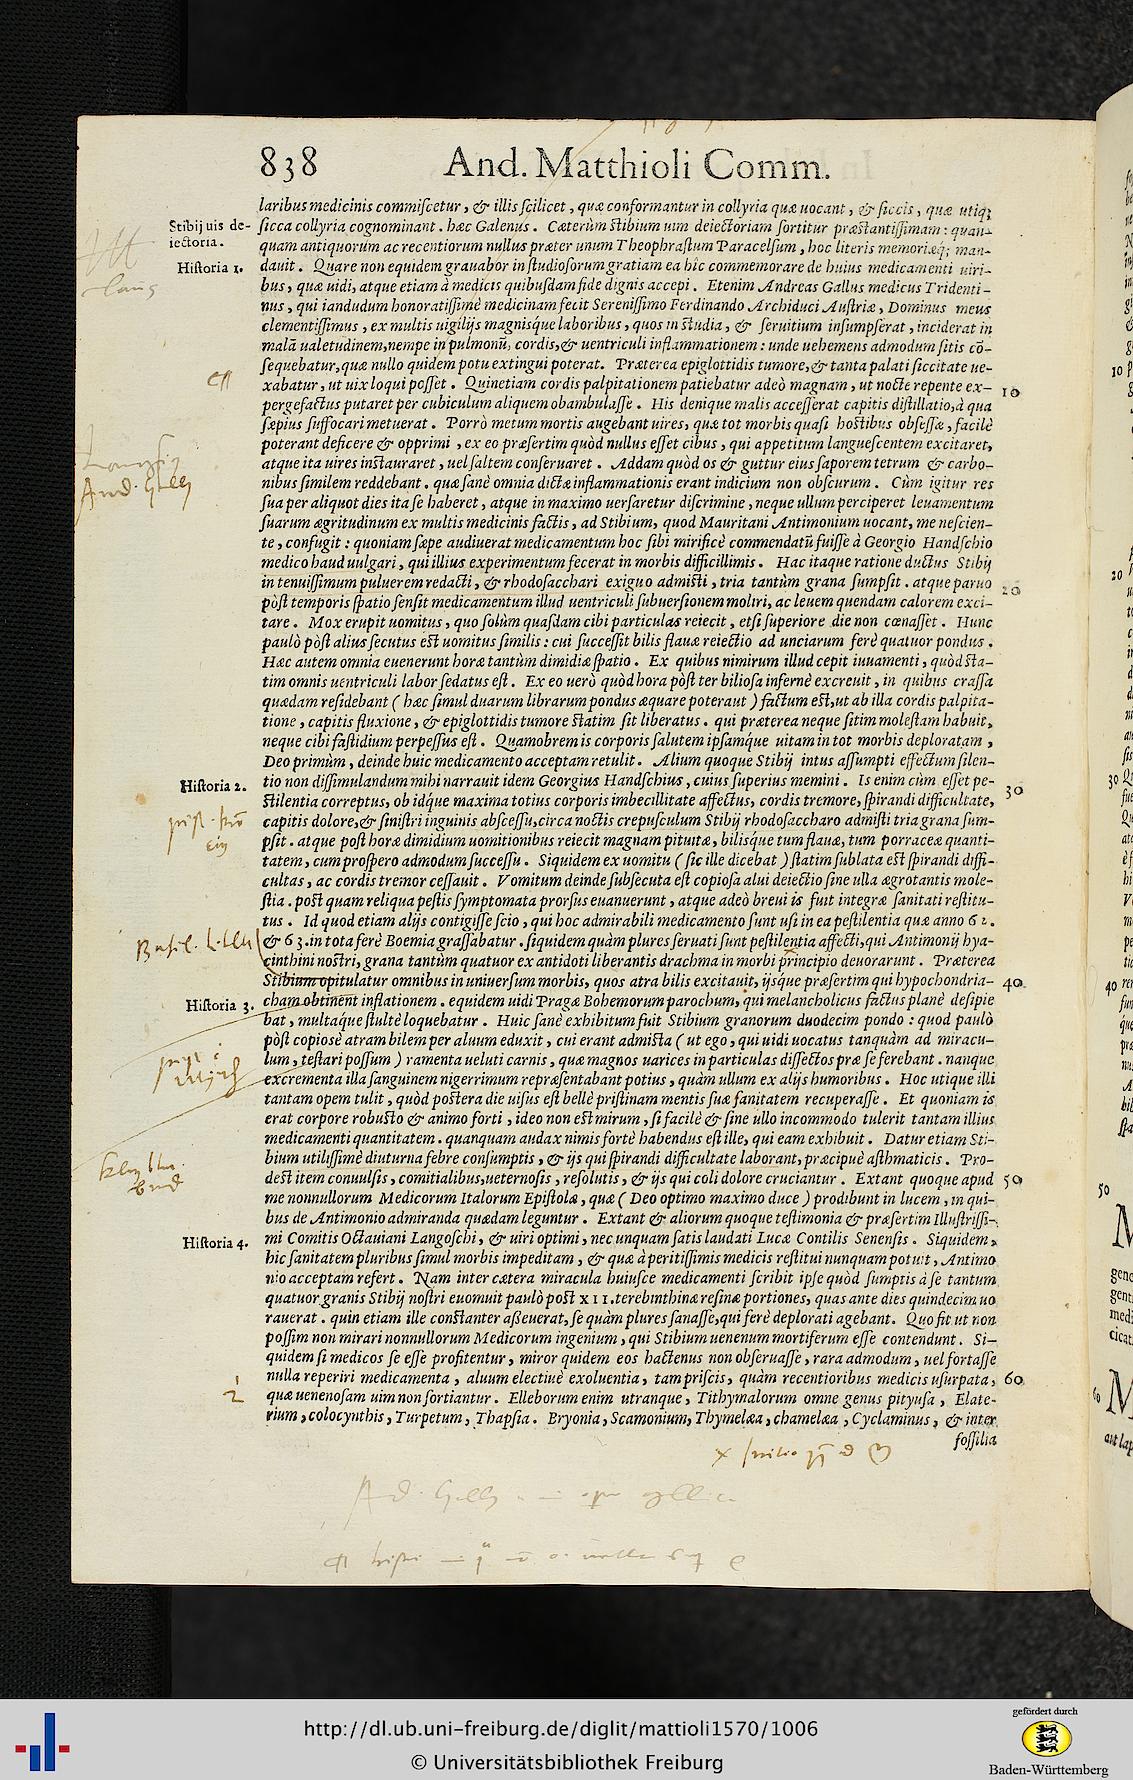 838 And. Matthioli Comm.
laribus medicinis commiſcetur, & illis ſcilicet, quæ conformantur in collyria quæ uocant, & ſiccis, quæ utiq;
Stibij uis de-
iectoria.
ſicca collyria cognominant. hæc Galenus. Cæterùm ſtibium uim deiectoriam ſortitur præſtantiſſimam: quan-
quam antiquorum ac recentiorum nullus præter unum Theophraſtum Paracelſum, hoc literis memoriæq; man-
Hiſtoria 1.
dauit. Quare non equidem grauabor in ſtudioſorum gratiam ea hîc commemorare de huius medicamenti uiri-
bus, quæ uidi, atque etiam à medicis quibuſdam fide dignis accepi. Etenim Andreas Gallus medicus Tridenti-
nus, qui iandudum honoratiſſimè medicinam fecit Sereniſſimo Ferdinando Archiduci Auſtriæ, Dominus meus
clementiſſimus, ex multis uigilijs magnisque laboribus, quos in ſtudia, & ſeruitium inſumpſerat, inciderat in
malā ualetudinem, nempe in pulmonū, cordis, & uentriculi inflammationem: unde uehemens admodum ſitis cō-
ſequebatur, quæ nullo quidem potu extingui poterat. Præterea epiglottidis tumore, & tanta palati ſiccitate ue-
xabatur, ut uix loqui poſſet. Quinetiam cordis palpitationem patiebatur adeò magnam, ut nocte repente ex- 10
pergefactus putaret per cubiculum aliquem obambulaſſe. His denique malis acceſſerat capitis diſtillatio, à qua
ſæpius ſuffocari metuerat. Porrò metum mortis augebant uires, quæ tot morbis quaſi hoſtibus obſeſſæ, facilè
poterant deficere & opprimi, ex eo præſertim quòd nullus eſſet cibus, qui appetitum langueſcentem excitaret,
atque ita uires inſtauraret, uel ſaltem conſeruaret. Addam quòd os & guttur eius ſaporem tetrum & carbo-
nibus ſimilem reddebant. quæ ſanè omnia dictæ inflammationis erant indicium non obſcurum. Cùm igitur res
ſua per aliquot dies ita ſe haberet, atque in maximo uerſaretur diſcrimine, neque ullum perciperet leuamentum
ſuarum ægritudinum ex multis medicinis factis, ad Stibium, quod Mauritani Antimonium uocant, me neſcien-
te, confugit: quoniam ſæpe audiuerat medicamentum hoc ſibi mirificè commendatū fuiſſe à Georgio Handſchio
medico haud uulgari, qui illius experimentum fecerat in morbis difficillimis. Hac itaque ratione ductus Stibij
in tenuiſſimum puluerem redacti, & rhodoſacchari exiguo admiſti, tria tantùm grana ſumpſit. atque paruo 20
pòſt temporis ſpatio ſenſit medicamentum illud uentriculi ſubuerſionem moliri, ac leuem quendam calorem exci-
tare. Mox erupit uomitus, quo ſolùm quaſdam cibi particulas reiecit, etſi ſuperiore die non cœnaſſet. Hunc
paulò pòſt alius ſecutus eſt uomitus ſimilis: cui ſucceſſit bilis flauæ reiectio ad unciarum ferè quatuor pondus.
Hæc autem omnia euenerunt horæ tantùm dimidiæ ſpatio. Ex quibus nimirum illud cepit iuuamenti, quòd ſta-
tim omnis uentriculi labor ſedatus eſt. Ex eo uerò quòd hora pòſt ter bilioſa infernè excreuit, in quibus craſſa
quædam reſidebant ( hæc ſimul duarum librarum pondus æquare poterant ) factum eſt, ut ab illa cordis palpita-
tione, capitis fluxione, & epiglottidis tumore ſtatim ſit liberatus. qui præterea neque ſitim moleſtam habuit,
neque cibi faſtidium perpeſſus eſt. Quamobrem is corporis ſalutem ipſamque uitam in tot morbis deploratam,
Deo primùm, deinde huic medicamento acceptam retulit. Alium quoque Stibij intus aſſumpti effectum ſilen-
Hiſtoria 2.
tio non diſſimulandum mihi narrauit idem Georgius Handſchius, cuius ſuperius memini. Is enim cùm eſſet pe- 30
ſtilentia correptus, ob idque maxima totius corporis imbecillitate affectus, cordis tremore, ſpirandi difficultate,
capitis dolore, & ſiniſtri inguinis abſceſſu, circa noctis crepuſculum Stibij rhodoſaccharo admiſti tria grana ſum-
pſit. atque poſt horæ dimidium uomitionibus reiecit magnam pituitæ, bilisque tum flauæ, tum porraceæ quanti-
tatem, cum proſpero admodum ſucceſſu. Siquidem ex uomitu ( ſic ille dicebat ) ſtatim ſublata eſt ſpirandi diffi-
cultas, ac cordis tremor ceſſauit. Vomitum deinde ſubſecuta eſt copioſa alui deiectio ſine ulla ægrotantis mole-
ſtia. poſt quam reliqua peſtis ſymptomata prorſus euanuerunt, atque adeò breui is fuit integræ ſanitati reſtitu-
tus. Id quod etiam alijs contigiſſe ſcio, qui hoc admirabili medicamento ſunt uſi in ea peſtilentia quæ anno 62.
& 63. in tota ferè Boemia graſſabatur. ſiquidem quàm plures ſeruati ſunt peſtilentia affecti, qui Antimonij hya-
cinthini noſtri, grana tantùm quatuor ex antidoti liberantis drachma in morbi principio deuorarunt. Præterea
Stibium opitulatur omnibus in uniuerſum morbis, quos atra bilis excitauit, ijsque præſertim qui hypochondria- 40
Hiſtoria 3.
cham obtinent inflationem. equidem uidi Pragæ Bohemorum parochum, qui melancholicus factus planè deſipie
bat, multaque ſtultè loquebatur. Huic ſanè exhibitum fuit Stibium granorum duodecim pondo: quod paulò
pòſt copiosè atram bilem per aluum eduxit, cui erant admiſta ( ut ego, qui uidi uocatus tanquàm ad miracu-
lum, teſtari poſſum ) ramenta ueluti carnis, quæ magnos uarices in particulas diſſectos præ ſe ferebant. nanque
excrementa illa ſanguinem nigerrimum repræſentabant potius, quàm ullum ex alijs humoribus. Hoc utique illi
tantam opem tulit, quòd poſtera die uiſus eſt bellè priſtinam mentis ſuæ ſanitatem recuperaſſe. Et quoniam is
erat corpore robuſto & animo forti, ideo non eſt mirum, ſi facilè & ſine ullo incommodo tulerit tantam illius
medicamenti quantitatem. quanquam audax nimis fortè habendus eſt ille, qui eam exhibuit. Datur etiam Sti-
bium utiliſſimè diuturna febre conſumptis, & ijs qui ſpirandi difficultate laborant, præcipuè aſthmaticis. Pro-
deſt item conuulſis, comitialibus, ueternoſis, reſolutis, & ijs qui coli dolore cruciantur. Extant quoque apud 50
me nonnullorum Medicorum Italorum Epiſtolæ, quæ ( Deo optimo maximo duce ) prodibunt in lucem, in qui-
bus de Antimonio admiranda quædam leguntur. Extant & aliorum quoque teſtimonia & præſertim Illuſtriſſi-
Hiſtoria 4.
mi Comitis Octauiani Langoſchi, & uiri optimi, nec unquam ſatis laudati Lucæ Contilis Senenſis. Siquidem,
hic ſanitatem pluribus ſimul morbis impeditam, & quæ à peritiſſimis medicis reſtitui nunquam potuit, Antimo
nio acceptam refert. Nam inter cætera miracula huiuſce medicamenti ſcribit ipſe quòd ſumptis à ſe tantum
quatuor granis Stibij noſtri euomuit paulò poſt XII. terebinthinæ reſinæ portiones, quas ante dies quindecim uo
rauerat. quin etiam ille conſtanter aßeuerat, ſe quàm plures ſanaſſe, qui ferè deplorati agebant. Quo fit ut non
poſſim non mirari nonnullorum Medicorum ingenium, qui Stibium uenenum mortiferum eſſe contendunt. Si-
quidem ſi medicos ſe eſſe profitentur, miror quidem eos hactenus non obſeruaſſe, rara admodum, uel fortaſſe
nulla reperiri medicamenta, aluum electiuè exoluentia, tam priſcis, quàm recentioribus medicis uſurpata, 60
quæ uenenoſam uim non ſortiantur. Elleborum enim utranque, Tithymalorum omne genus pityuſa, Elate-
rium, colocynthis, Turpetum, Thapſia. Bryonia, Scamonium, Thymelæa, chamelæa, Cyclaminus, & inter
foſſilia
http://dl.ub.uni-freiburg.de/diglit/mattioli1570/1006
© Universitätsbibliothek Freiburg
gefördert durch
Baden-Württemberg